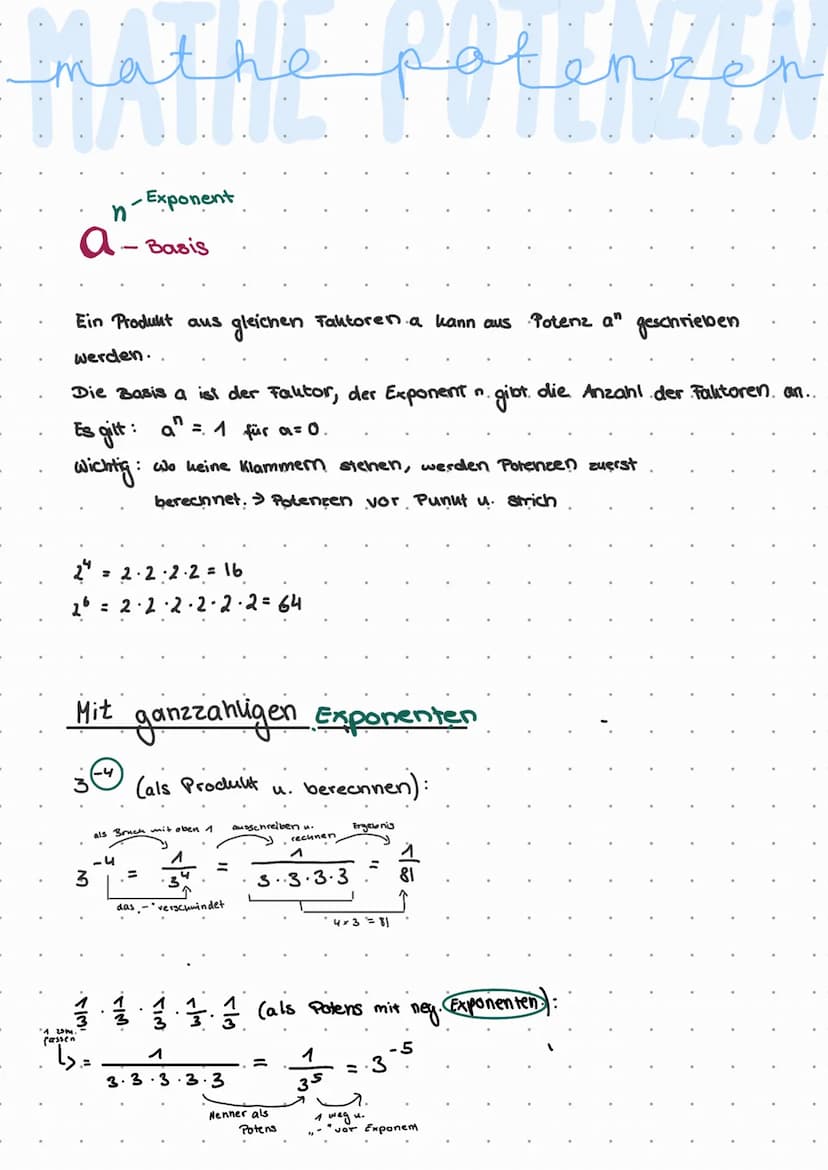 MATHE POTENZEN
mathe potenzen
n - Exponent
a - Basis
Ein Produkt aus gleichen Faktoren a kann aus Potenz aⁿ geschrieben
werden.
Die Basis a ist der Faktor, der Exponent n gibt die Anzahl der Faktoren an.
Es gilt: aⁿ = 1 für a=0.
Wichtig: Wo keine Klammern stehen, werden Potenzen zuerst
berechnet. → Potenzen vor Punkt u. Strich
2⁴ = 2·2·2·2 = 16
2⁶ = 2·2·2·2·2·2 = 64
Mit ganzzahligen Exponenten
3⁻⁴ (als Produkt u. berechnen):
als Bruch mit oben 1 ausschreiben u. rechnen Ergebnis
3⁻⁴ = 1/3⁴ = 1/(3·3·3·3) = 1/81
das „-" verschwindet
4x3 = 81
1/3 · 1/3 · 1/3 · 1/3 · 1/3 (als Potens mit neg. Exponenten):
1 zsm.
fassen
↳ = 1/(3·3·3·3·3) = 1/3⁵ = 3⁻⁵
Nenner als 1 weg u.
Potens „-" vor Exponem